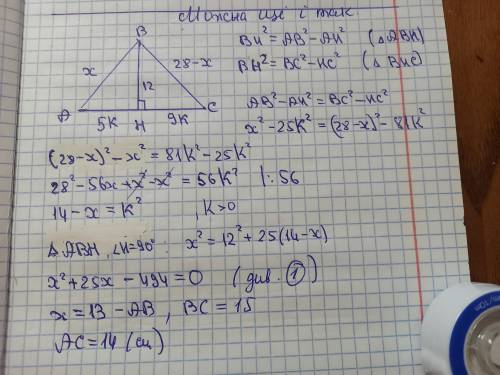 Можна ще і так
B
x
28-x
12
A
C
5K
H
9K
BH² = AB² - AH² (△ABH)
BH² = BC² - HC² (△BHC)
AB² - AH² = BC² - HC²
x² - 25K² = (28-x)² - 81K²
(28-x)² - x² = 81K² - 25K²
28² - 56x + x² - x² = 56K² |:56
14 - x = K² , K>0
△ABH, ∠H=90° : x² = 12² + 25(14-x)
x² + 25x - 494 = 0 (див. ①)
x = 13 - AB , BC = 15
AC = 14 (см)